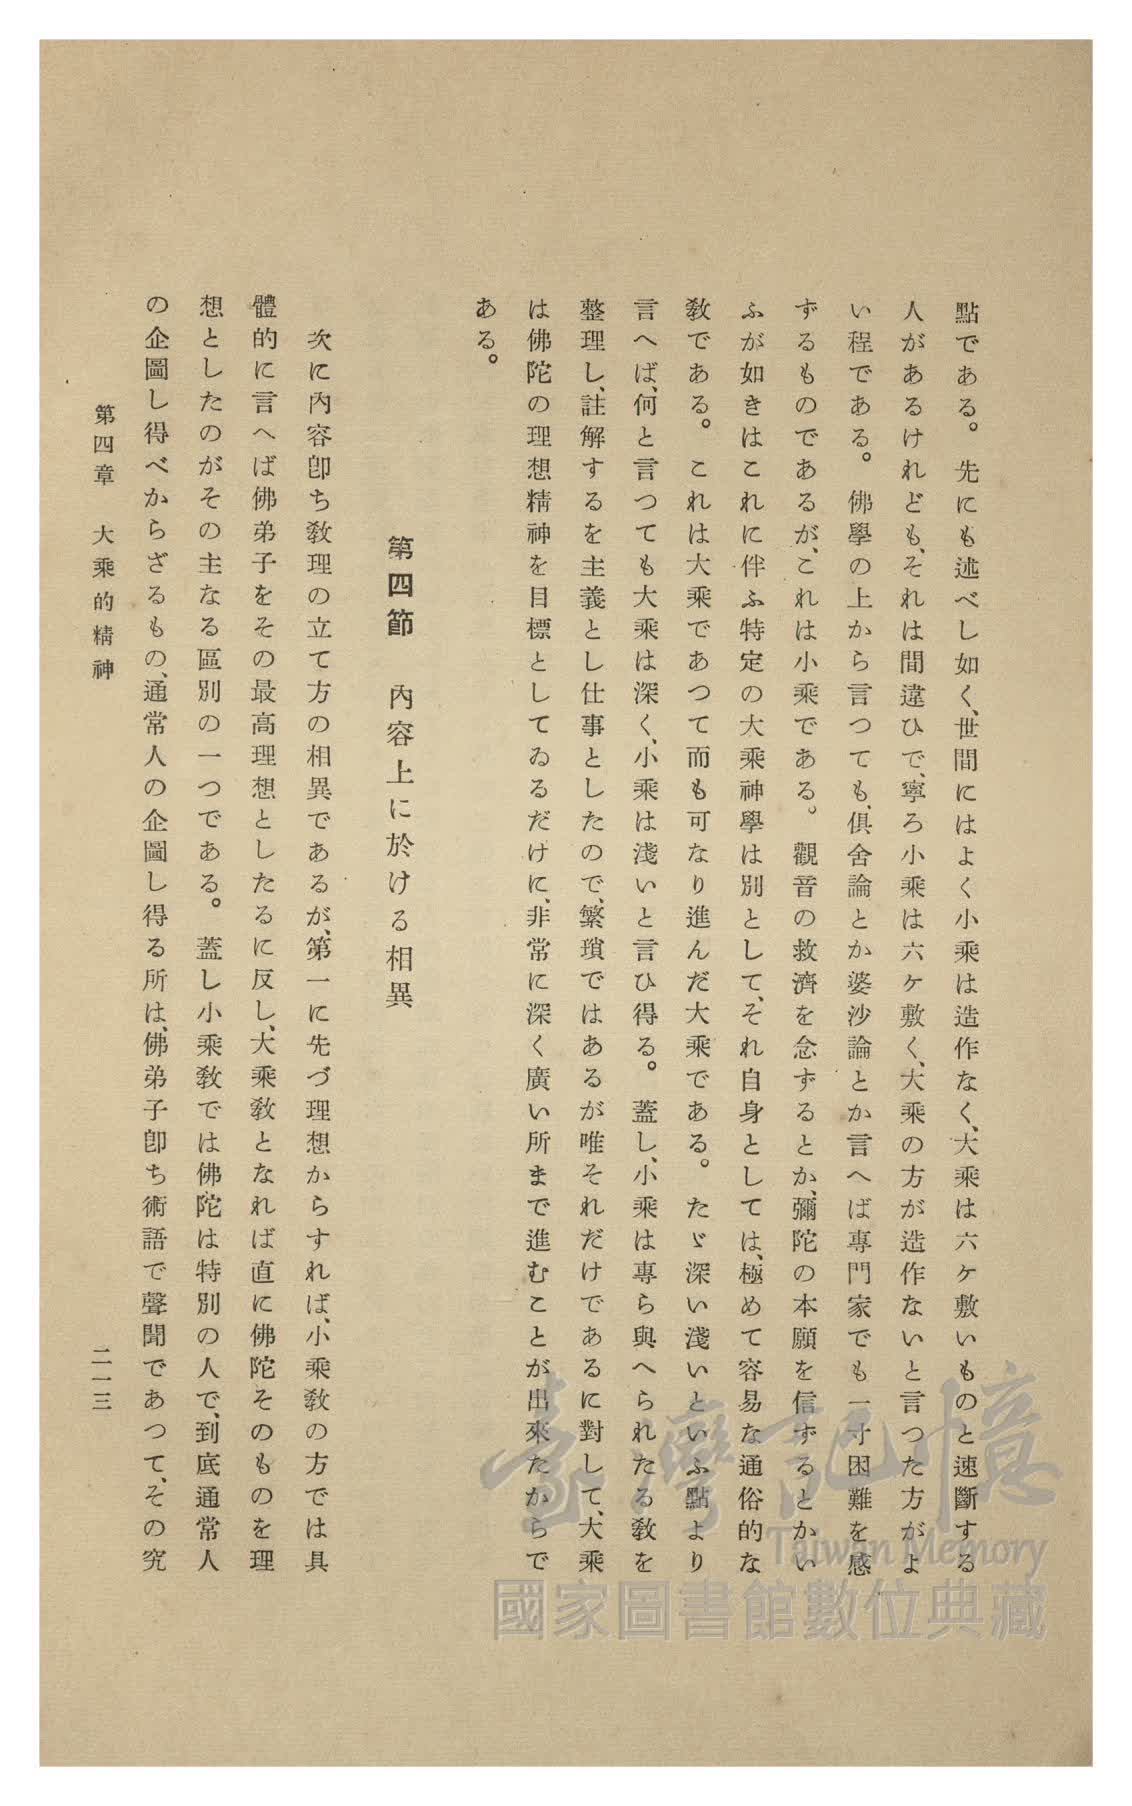 點である。先にも述べし如く、世間にはよく小乘は造作なく、大乘は六ケ敷いものと速斷する
人があるけれども、それは間違ひで、寧ろ小乘は六ケ敷く、大乘の方が造作ないと言つた方がよ
い程である。佛學の上から言つても、俱舍論とか婆沙論とか言へば專門家でも一寸困難を感
ずるものであるが、これは小乘である。觀音の救濟を念ずるとか、彌陀の本願を信ずるとかい
ふが如きはこれに伴ふ特定の大乘神學は別として、それ自身としては、極めて容易な通俗的な
敎である。これは大乘であつて而も可なり進んだ大乘である。たゞ深い淺いといふ點より
言へば、何と言つても大乘は深く、小乘は淺いと言ひ得る。蓋し、小乘は專ら與へられたる敎を
整理し、註解するを主義とし仕事としたので、繁瑣ではあるが唯それだけであるに對して、大乘
は佛陀の理想精神を目標としてゐるだけに、非常に深く廣い所まで進むことが出來たからで
ある。
第四節　內容上に於ける相異
次に內容卽ち敎理の立て方の相異であるが、第一に先づ理想からすれば、小乘敎の方では具
體的に言へば佛弟子をその最高理想としたるに反し、大乘敎となれば直に佛陀そのものを理
想としたのがその主なる區別の一つである。蓋し小乘敎では佛陀は特別の人で、到底通常人
の企圖し得べからざるもの、通常人の企圖し得る所は、佛弟子卽ち術語で聲聞であつて、その究
第四章　大乘的精神
二一三
臺灣記憶
Taiwan Memory
國家圖書館數位典藏